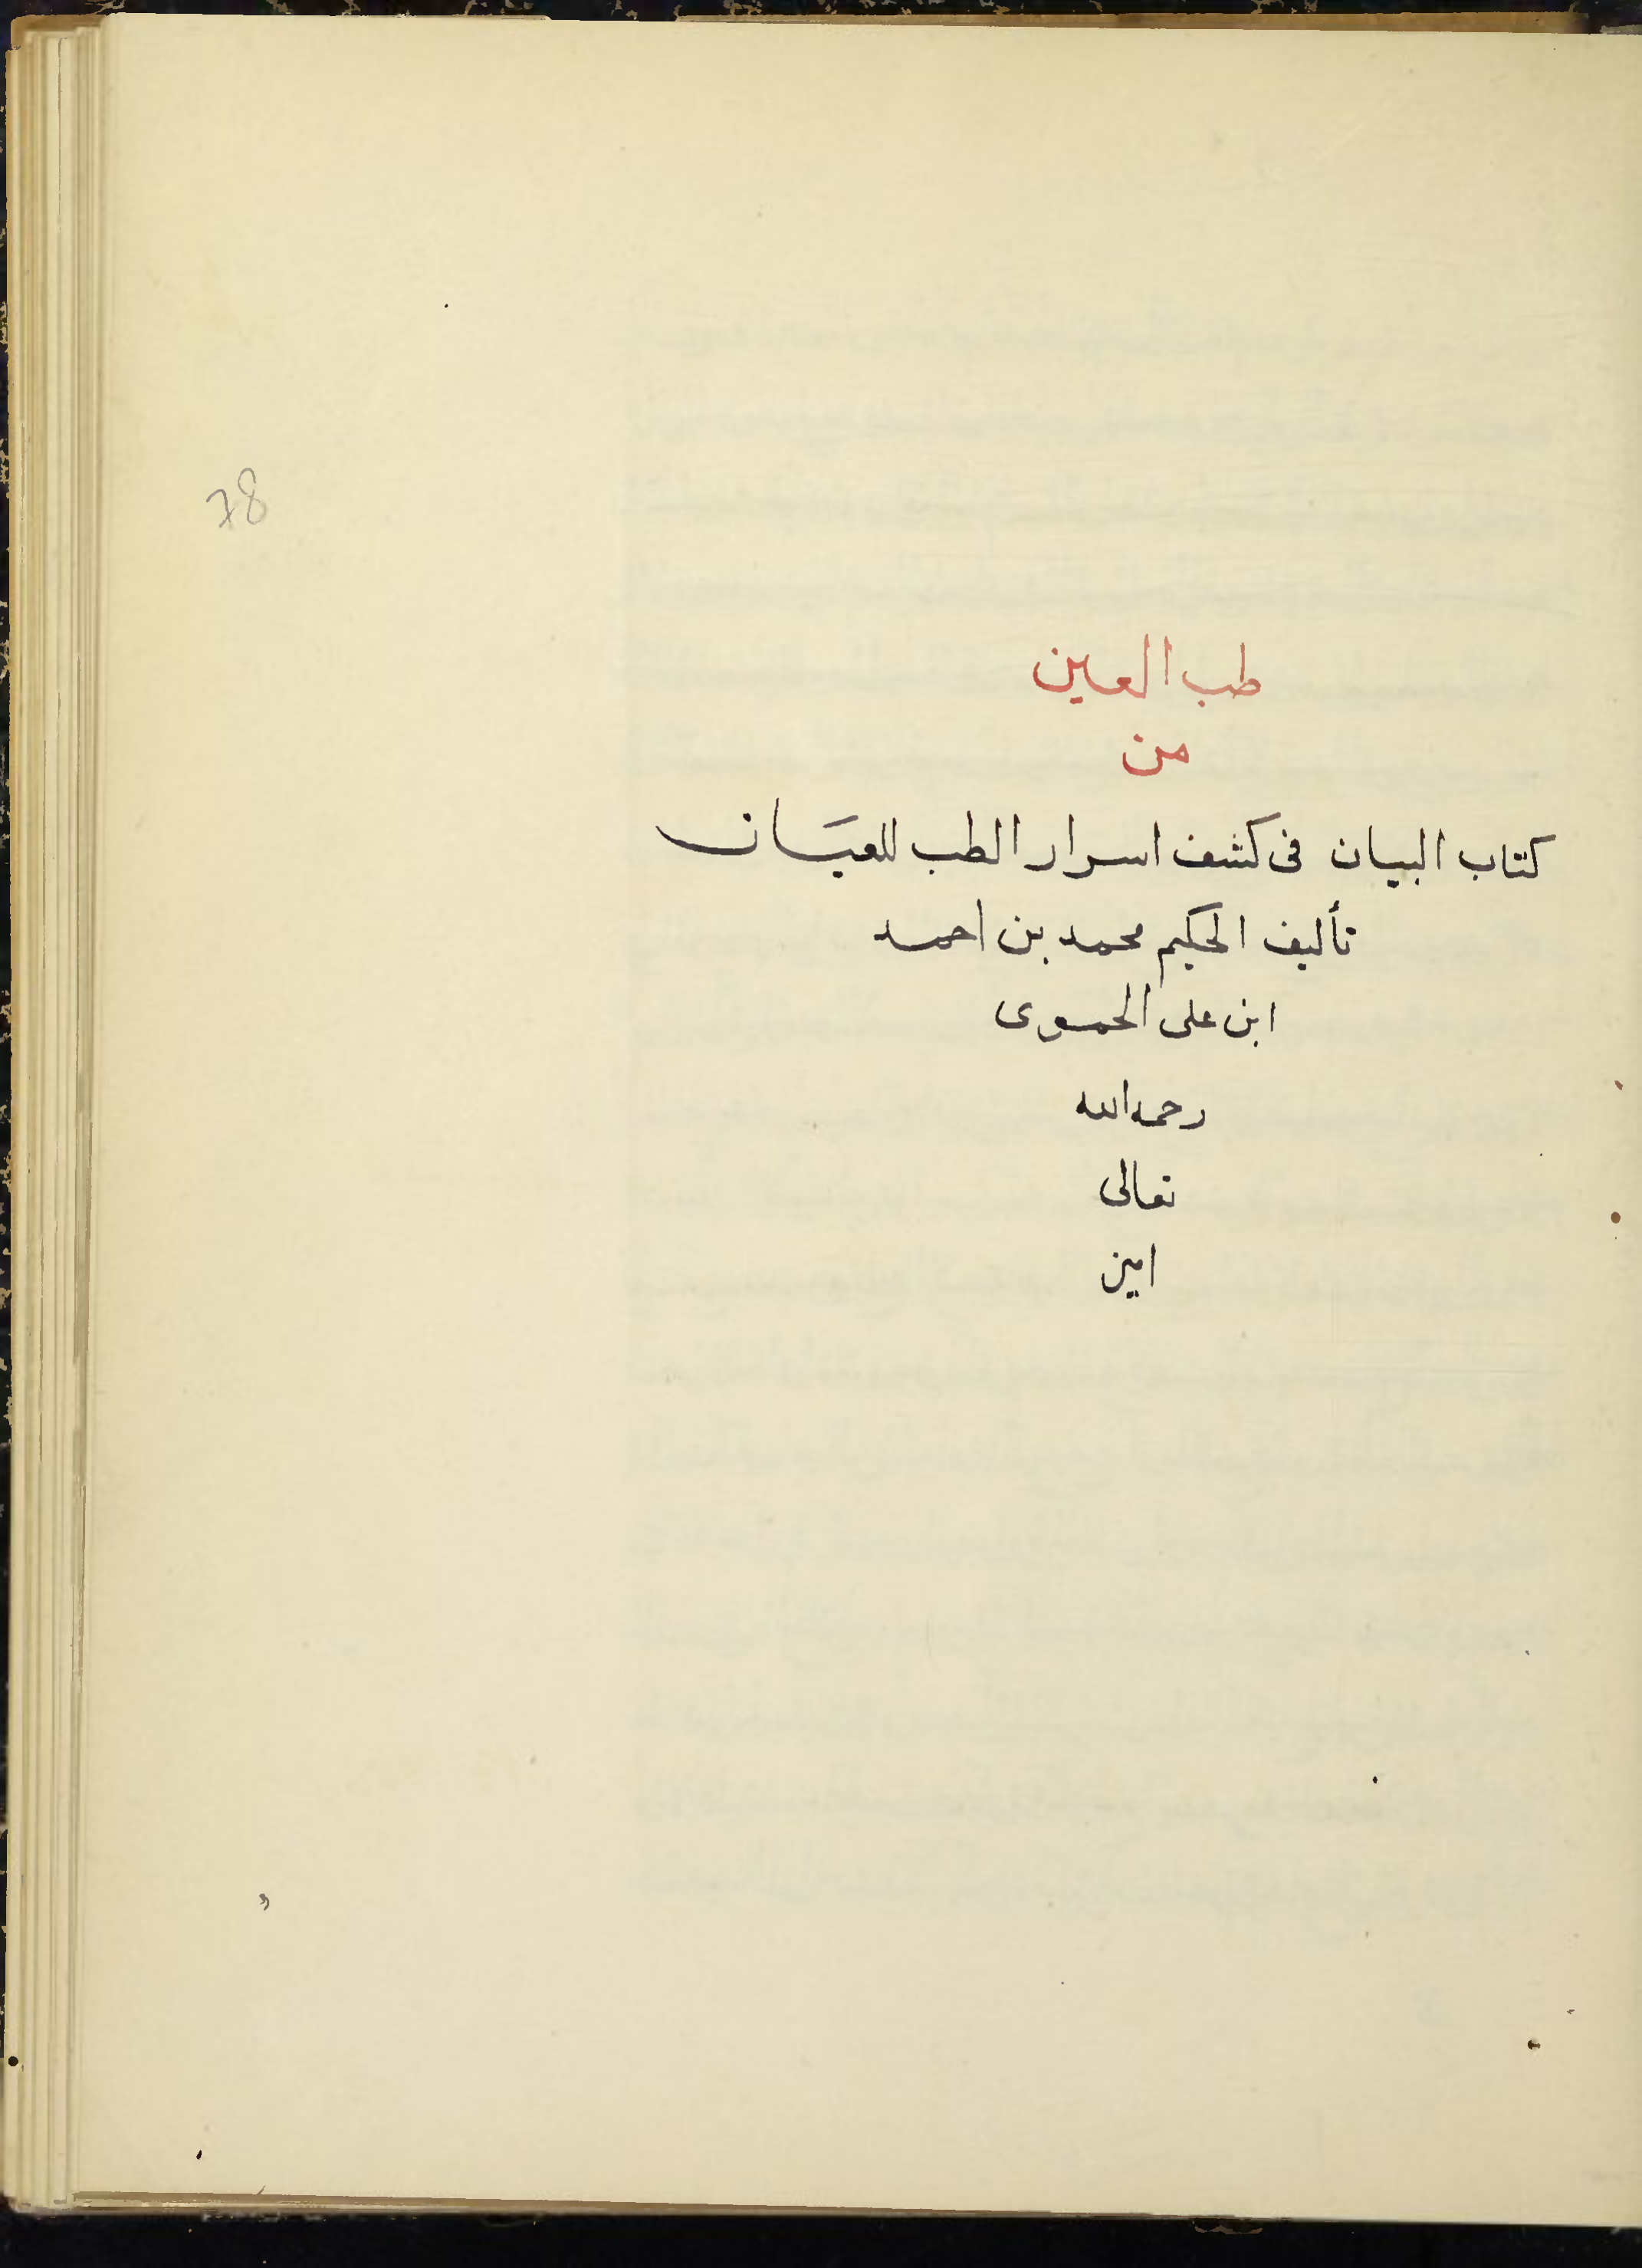 78
طب العين
من
كتاب البيان فى كشف اسرار الطب للعيَان
تأليف الحكيم محمد بن احمد
ابن على الحموى
رحمه الله
تعالى
امين